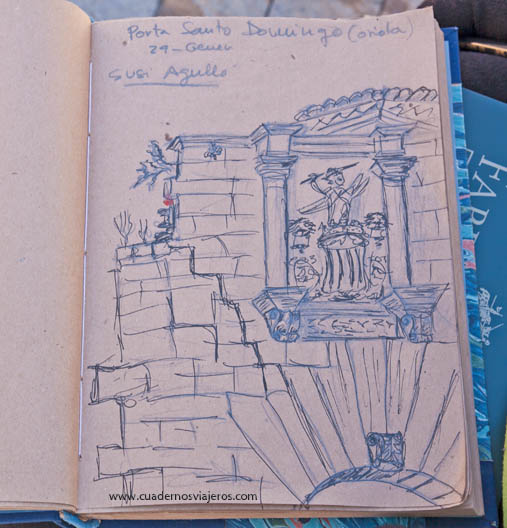 Porta Santo Domingo (oriola)
29-Gener
Susi Agulló
www.cuadernosviajeros.com